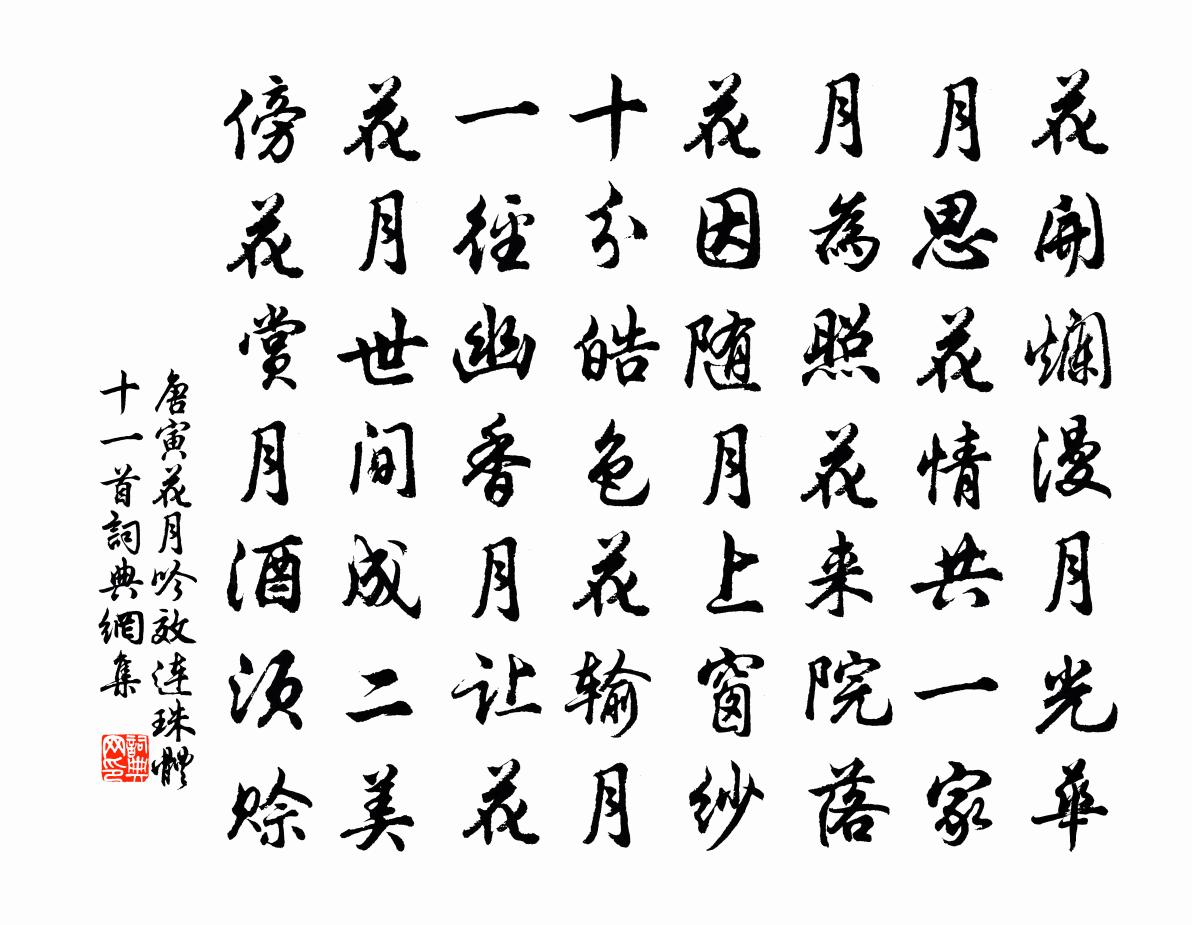 花開爛漫月光華
月思花情共一家
月為照花来院落
花因随月上窗紗
十分皓色花输月
一徑幽香月让花
花月世间成二美
傍花赏月酒须赊
唐寅花月吟效连珠體
十一首詞典網集
詞典网印